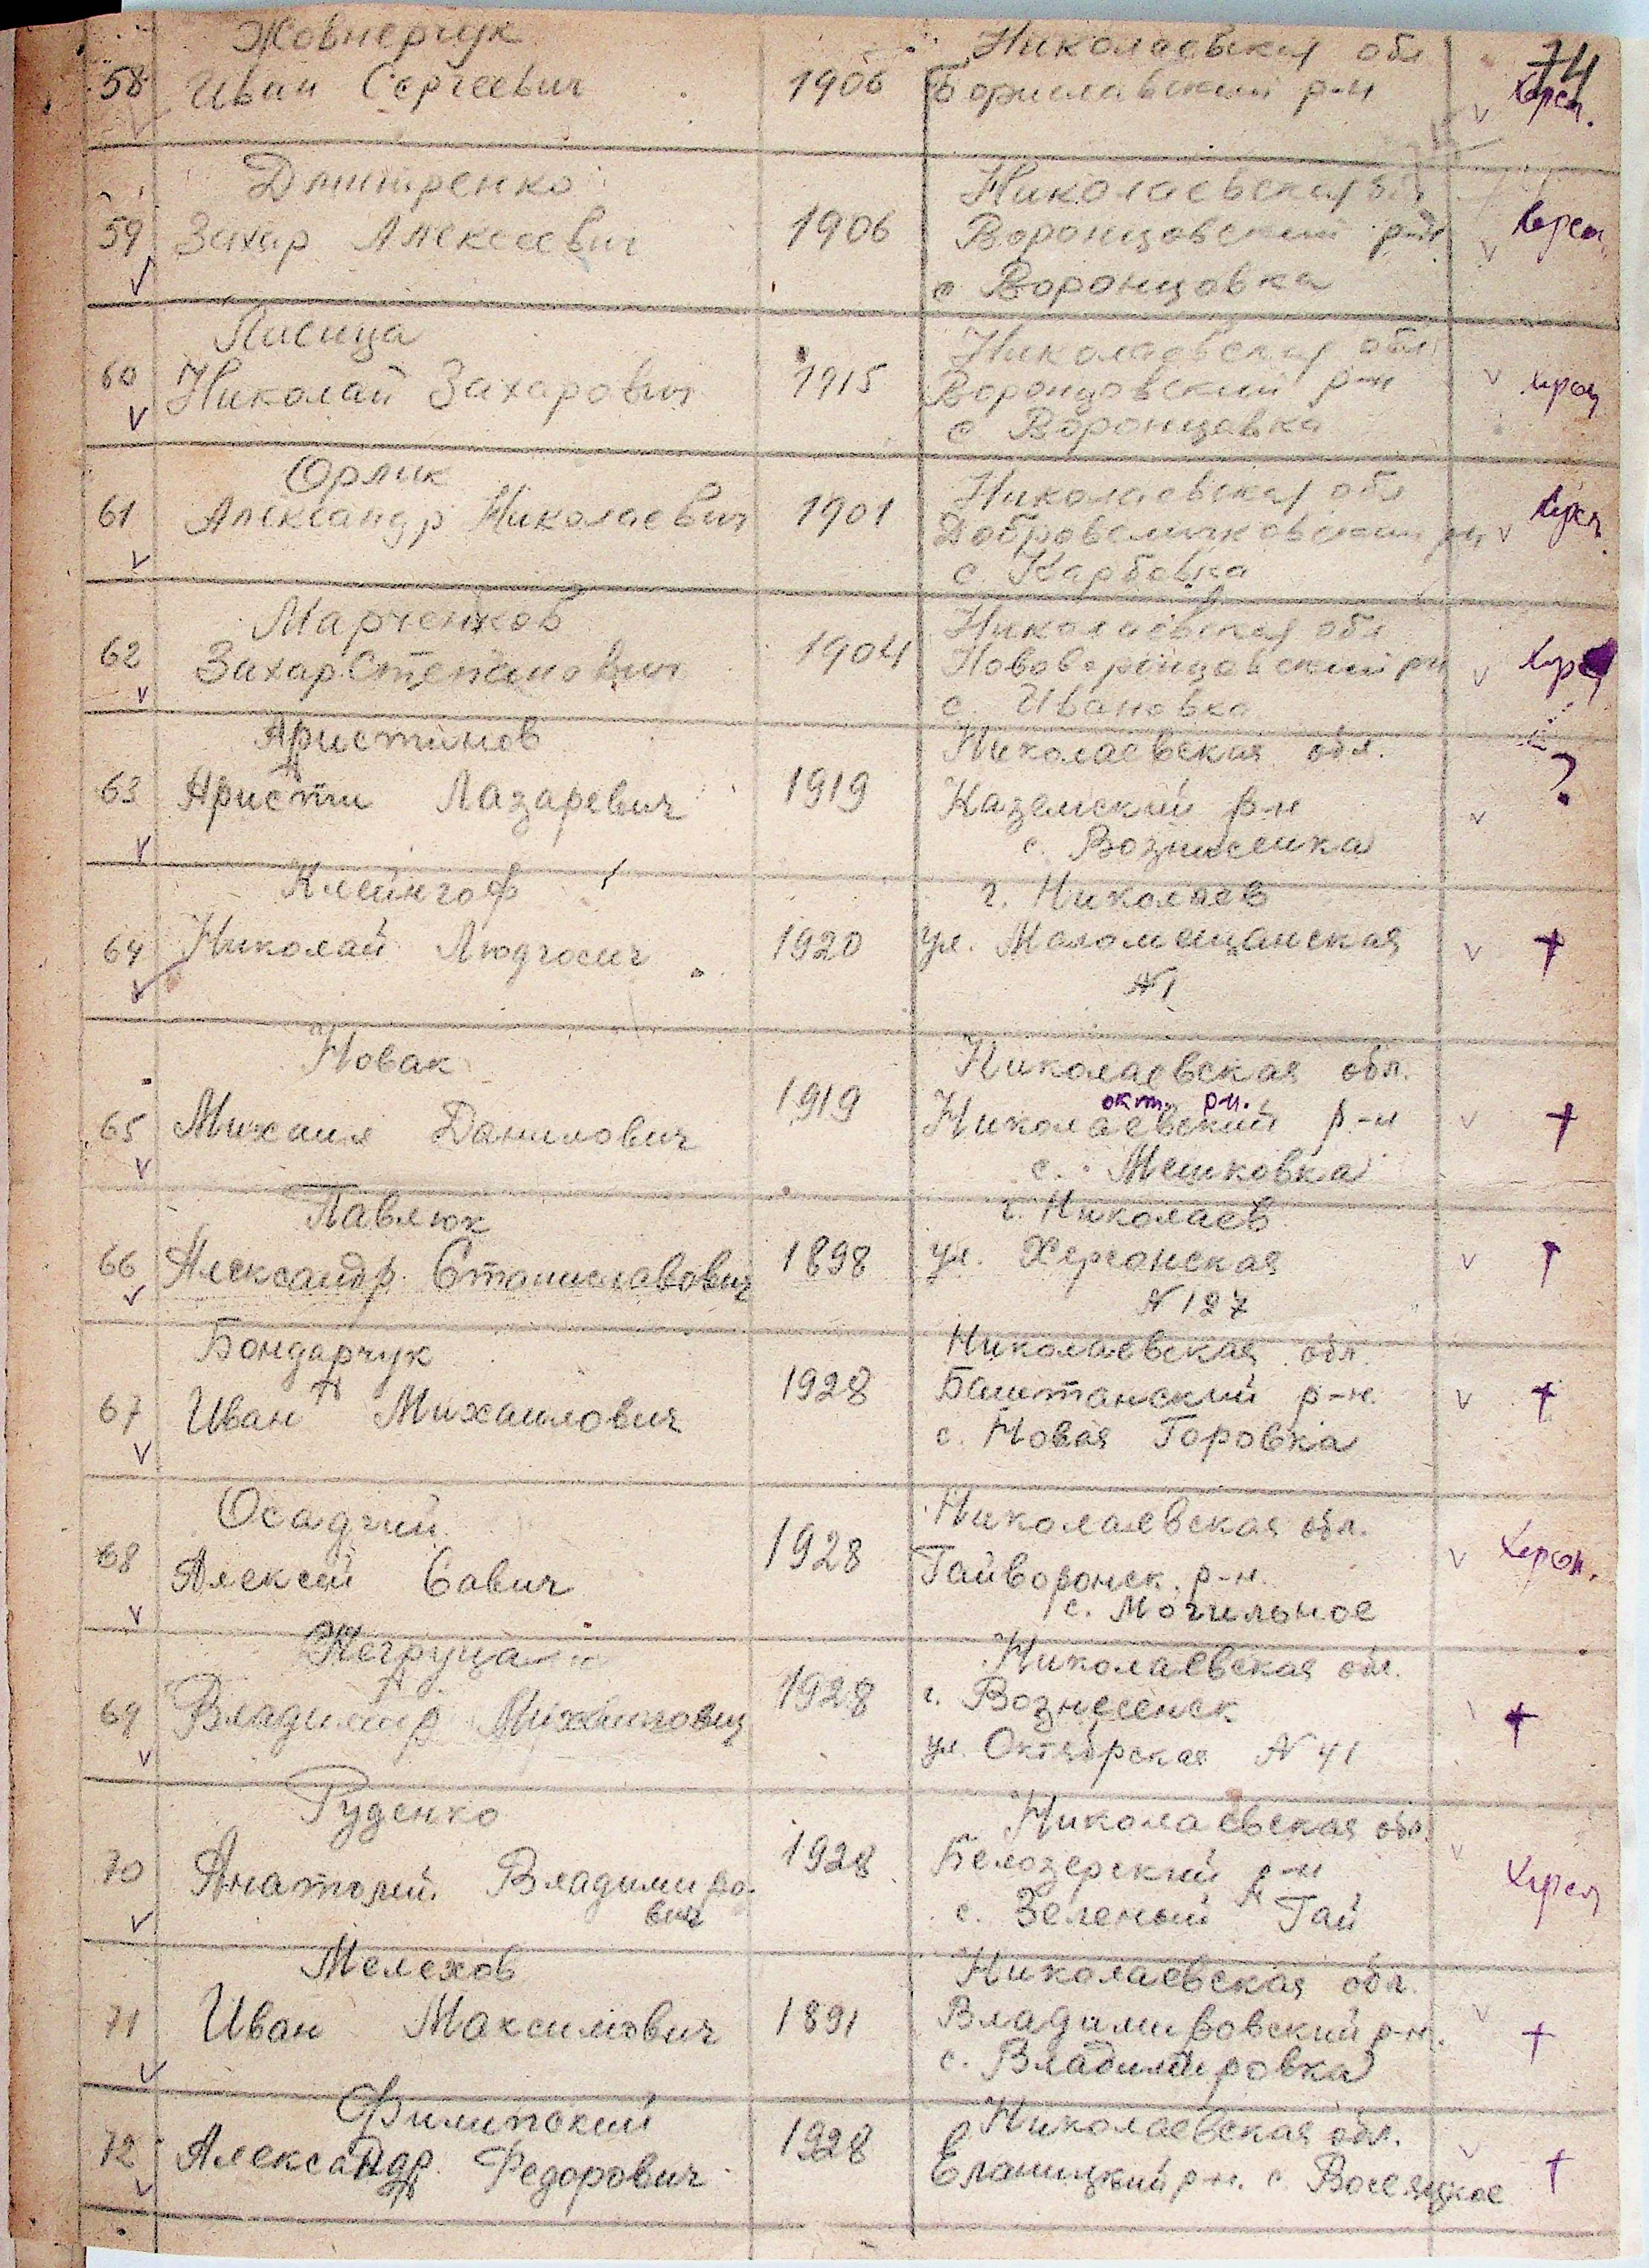 74
Жовнерчук Николаевская обл
58 Иван Сергеевич 1906 Бориславский р-н Херсон.
Дмитренко Николаевская обл
59 Захар Алексеевич 1906 Воронцовский р-н Херсон
с Воронцовка
Лисица Николаевская обл
60 Николай Захарович 1915 Воронцовский р-н Херсон
с Воронцовка
Орлик Николаевская обл
61 Александр Николаевич 1901 Добровеличковский рн Херсон
с. Карбовка
Марченков Николаевская обл
62 Захар Степанович 1904 Нововоронцовский рн
с. Ивановка
Аристинов Николаевская обл. ?
63 Аристи Лазаревич 1919 Каземский р-н
с. Вознисенка
Клейнгоф г. Николаев
64 Николай 1920 ул. Маломещанская
№1
Новак Николаевская обл.
окт. р-н.
65 Михаил Данилович 1919 Николаевский р-н
с. Мешковка
Павлюк г. Николаев
66 Александр Станиславович 1898 ул. Херсонская
№ 127
Бондарчук Николаевская обл.
67 Иван Михаилович 1928 Баштанский р-н.
с. Новая Горовка
Осадчий Николаевская обл.
68 Алексей Савич 1928 Гайворонск. р-н. Херсон.
с. Могильное
Негруца Николаевская обл.
69 Владимир Михаилович 1928 г. Вознесенск
ул. Октябрская № 41
Руденко Николаевская обл.
70 Анатолий Владимиро- 1928 Белозерский р-н Херсон
вич с. Зеленый Гай
Мелехов Николаевская обл.
71 Иван Максимович 1891 Владимировский р-н.
с. Владимировка
Филипский Николаевская обл.
72 Александр Федорович 1928 Еланицкий р-н. с. Воселяцкое